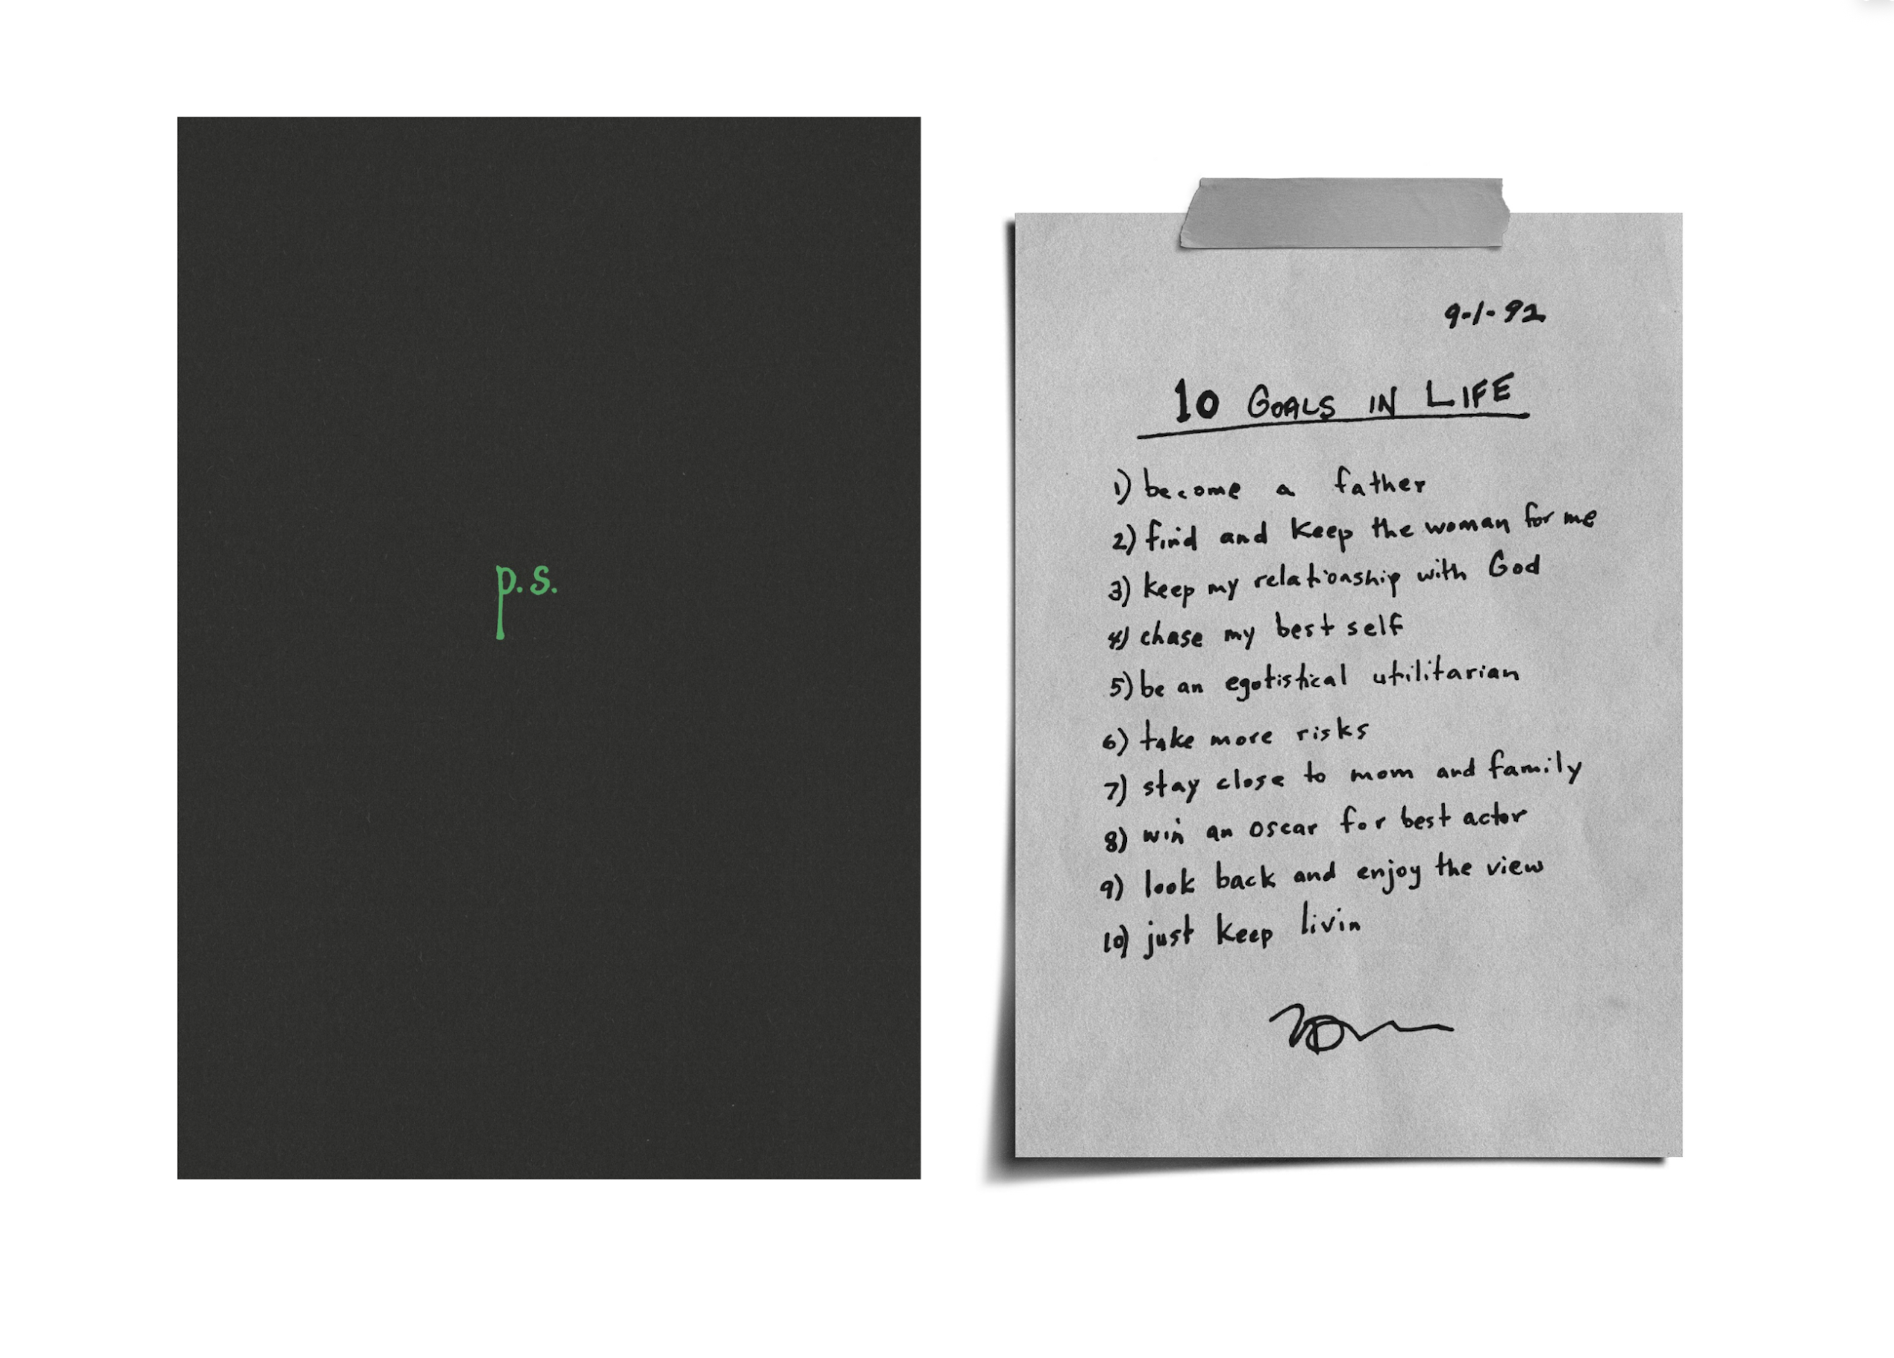 p.s.
9-1-92
10 GOALS IN LIFE
1) become a father
2) find and keep the woman for me
3) keep my relationship with God
4) chase my best self
5) be an egotistical utilitarian
6) take more risks
7) stay close to mom and family
8) win an oscar for best actor
9) look back and enjoy the view
10) just keep livin